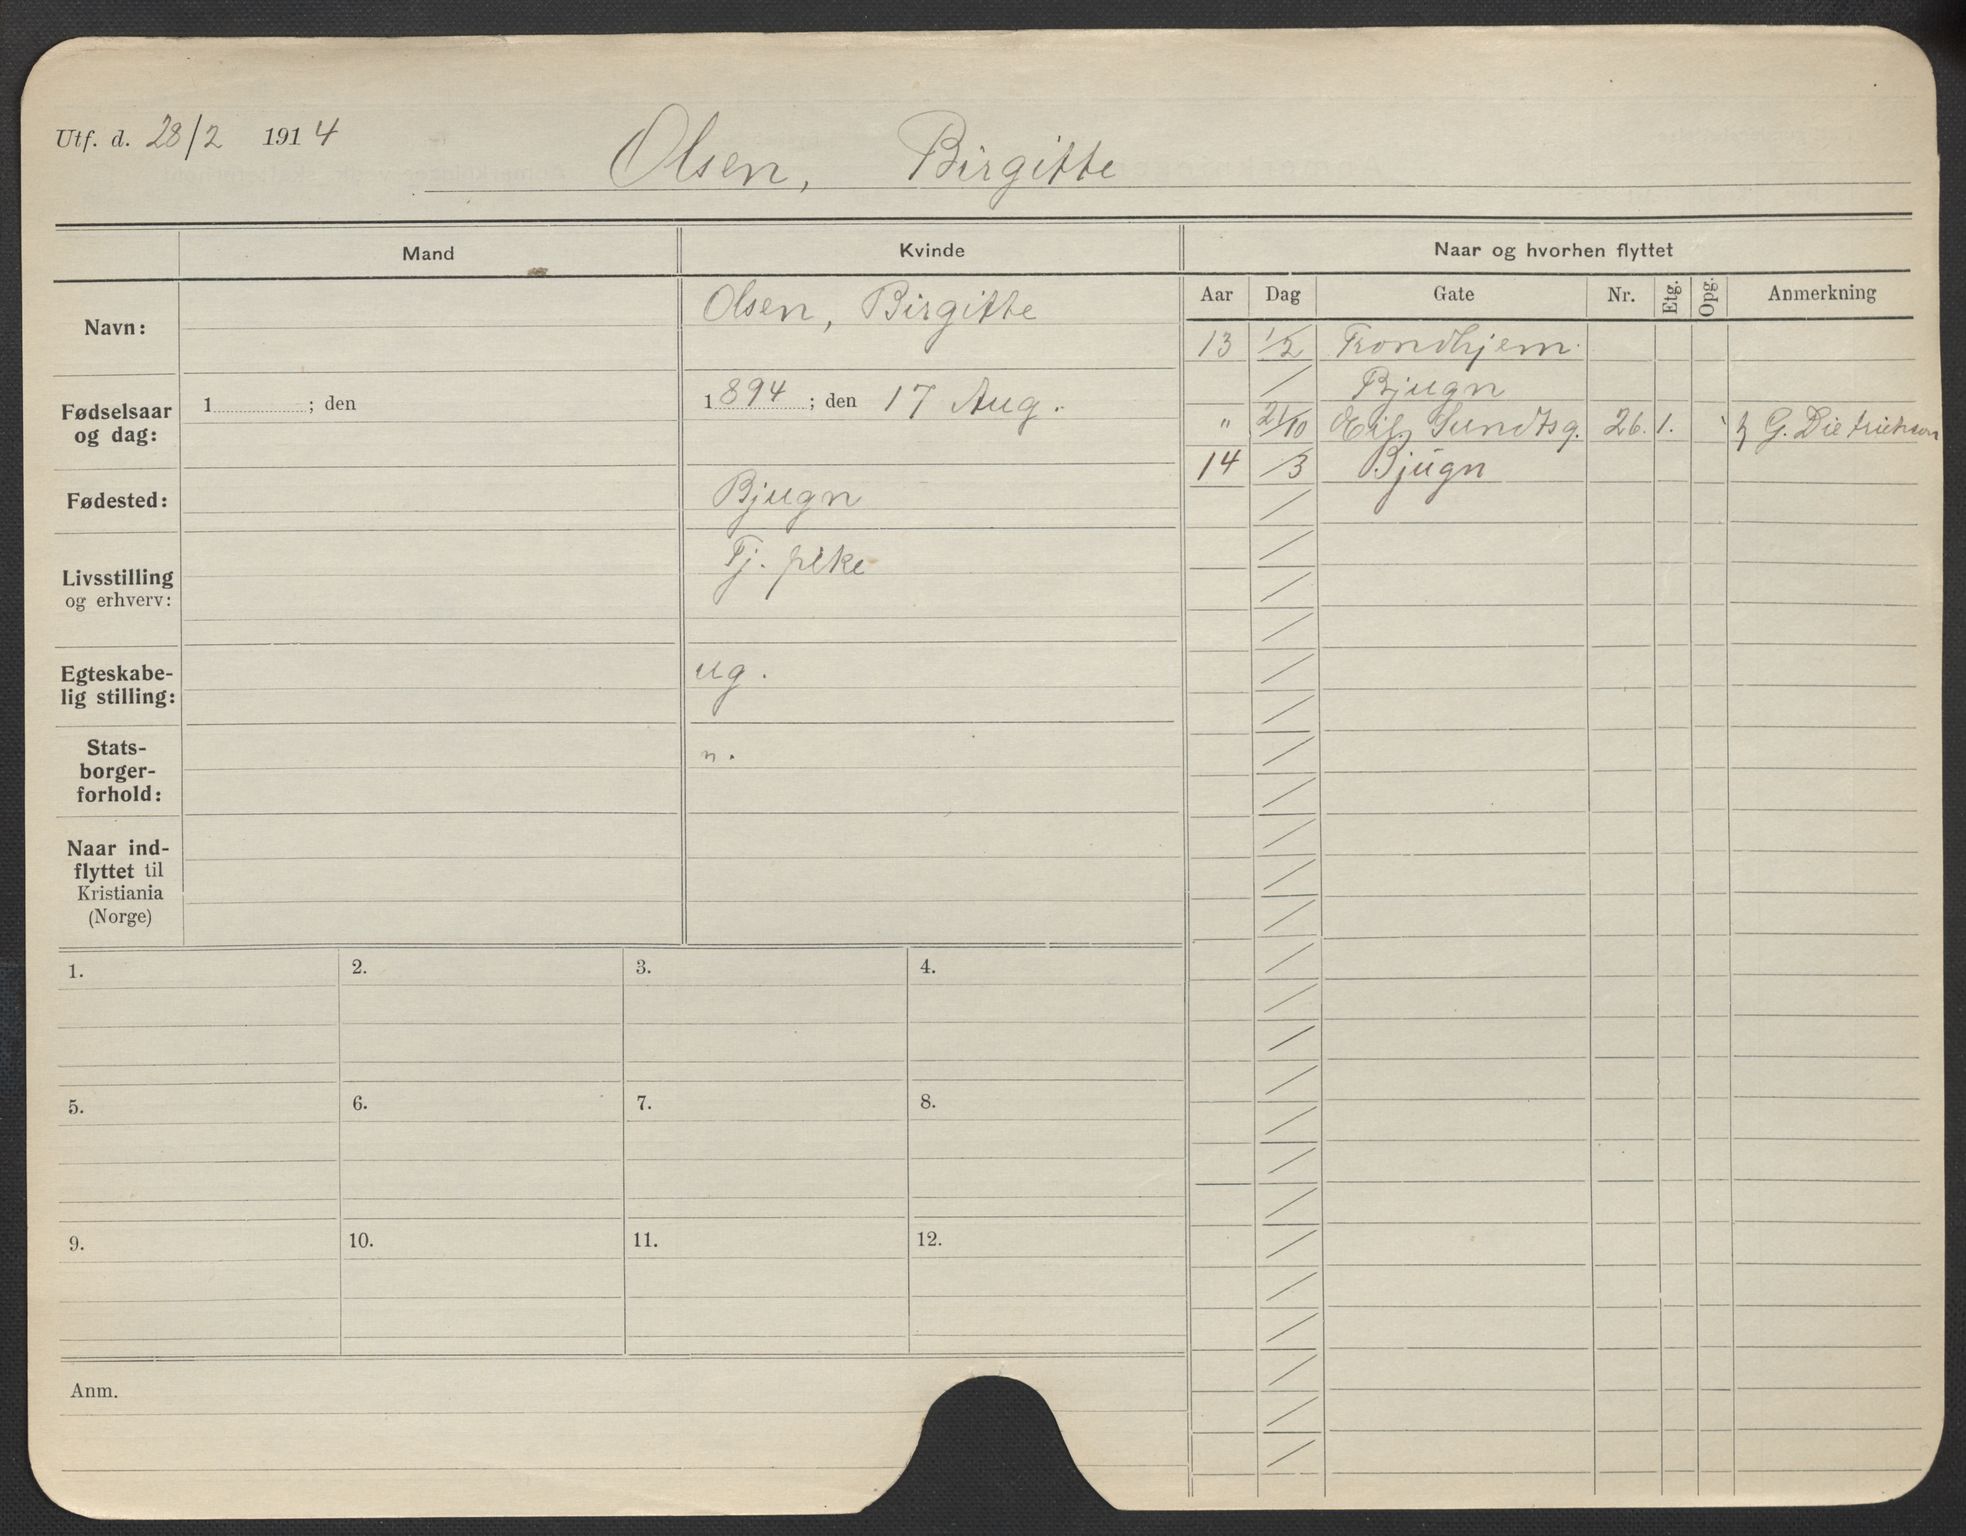 Utf. d. 28/2 1914
Olsen, Birgitte
Mand
Kvinde
Naar og hvorhen flyttet
Aar Dag Gate Nr. Etg. Opg. Anmerkning
Navn:
Olsen, Birgitte
Fødselsaar
og dag:
1 ; den
1894 ; den 17 Aug.
Fødested:
Bjugn
Livsstilling
og erhverv:
Tj. pike
Egteskabe-
lig stilling:
ug.
Stats-
borger-
forhold:
n.
Naar ind-
flyttet til
Kristiania
(Norge)
13 1/2 Trondhjem
/ Bjugn
" 21/10 Eil. Sundtsg. 26. 1. G. Dietrichson
14 /3 Bjugn
1. 2. 3. 4.
5. 6. 7. 8.
9. 10. 11. 12.
Anm.